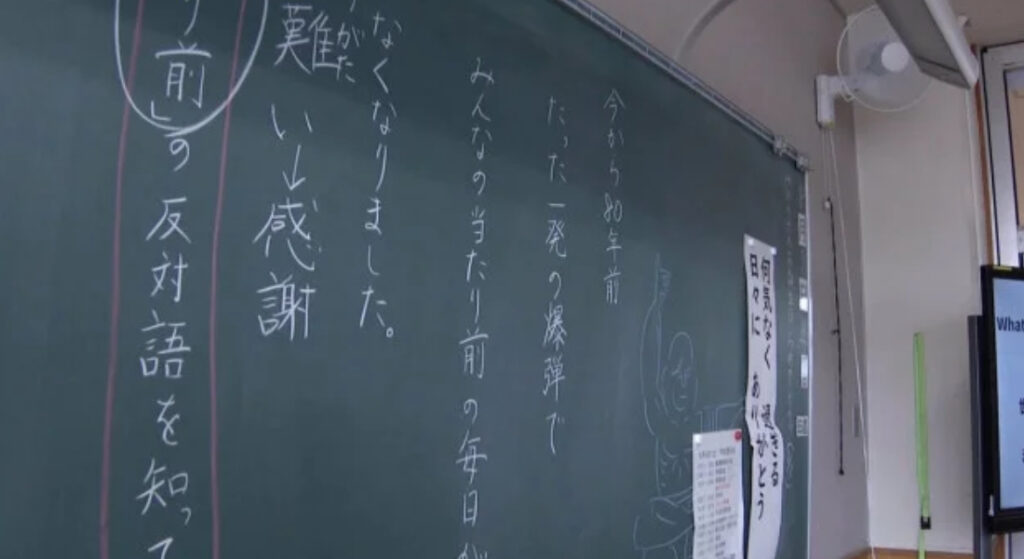 今から80年前
たった一発の爆弾で
みんなの当たり前の毎日が
なくなりました。
がた
難い→感謝
り前」の反対語を知って
何気なく過ぎる
日々に ありがとう
What